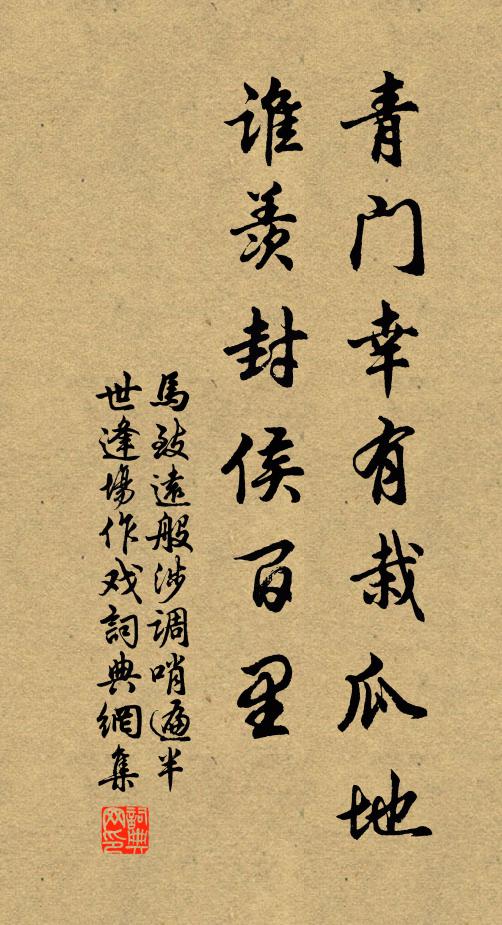 青门幸有栽瓜地
谁羡封侯百里
馬致遠般涉调哨遍半
世逢場作戏詞典網集
詞典网印